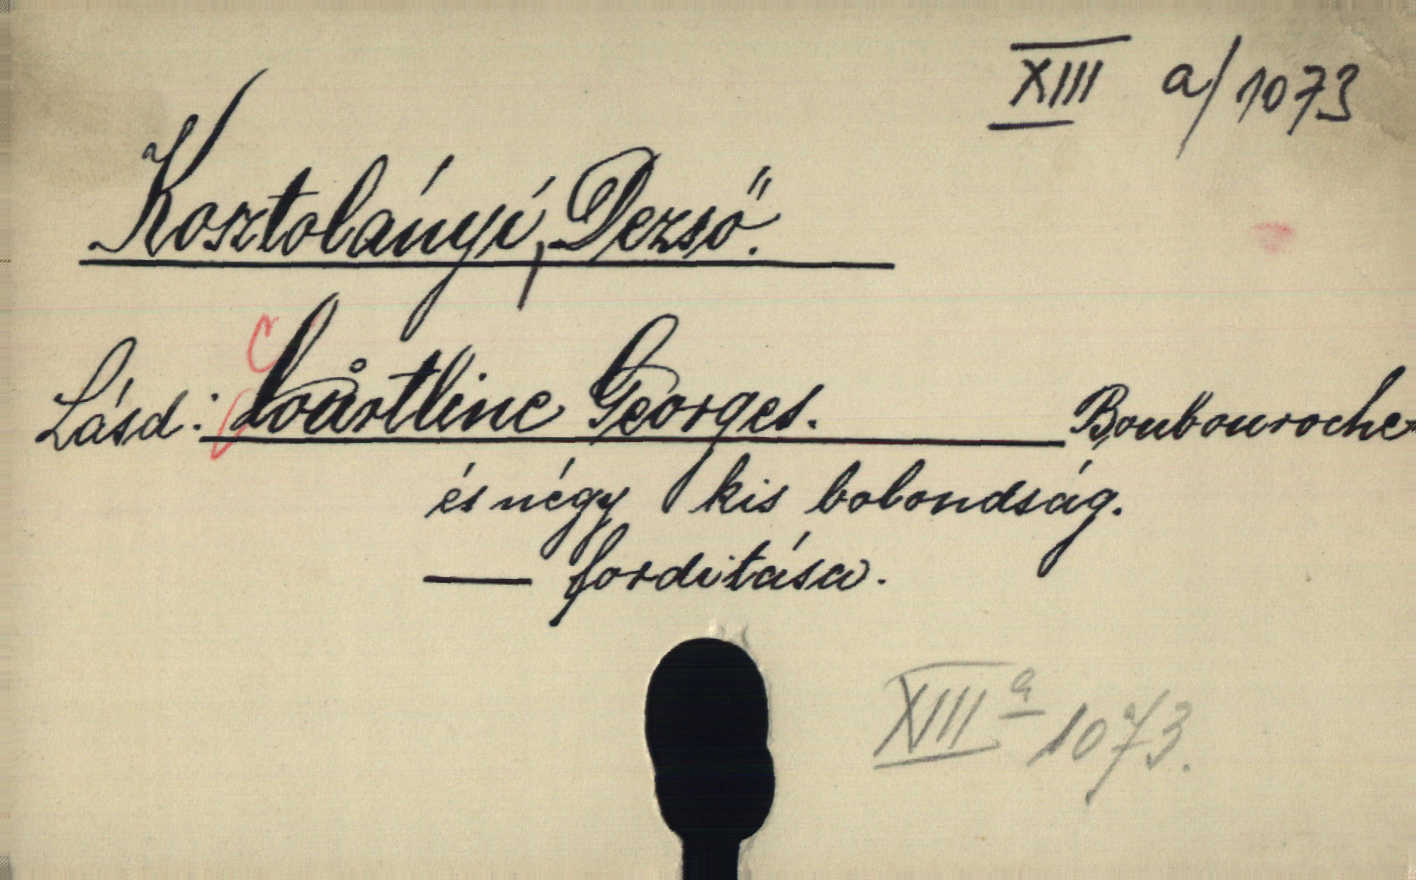 XIII a/1073
Kosztolányi, Dezső.
Lásd: Courtline Georges. Boubouroche
és négy kis bolondság.
— forditása.
XIII a 1073.